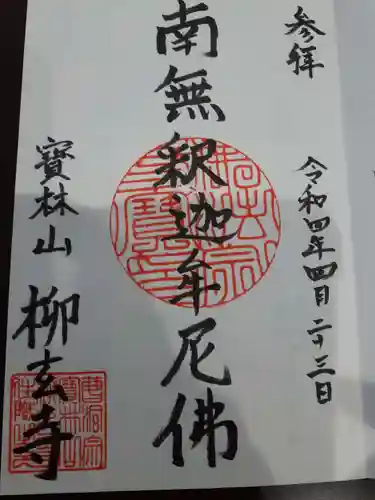 参拝
令和四年四月二十三日
南無釈迦牟尼佛
寳林山
柳玄寺